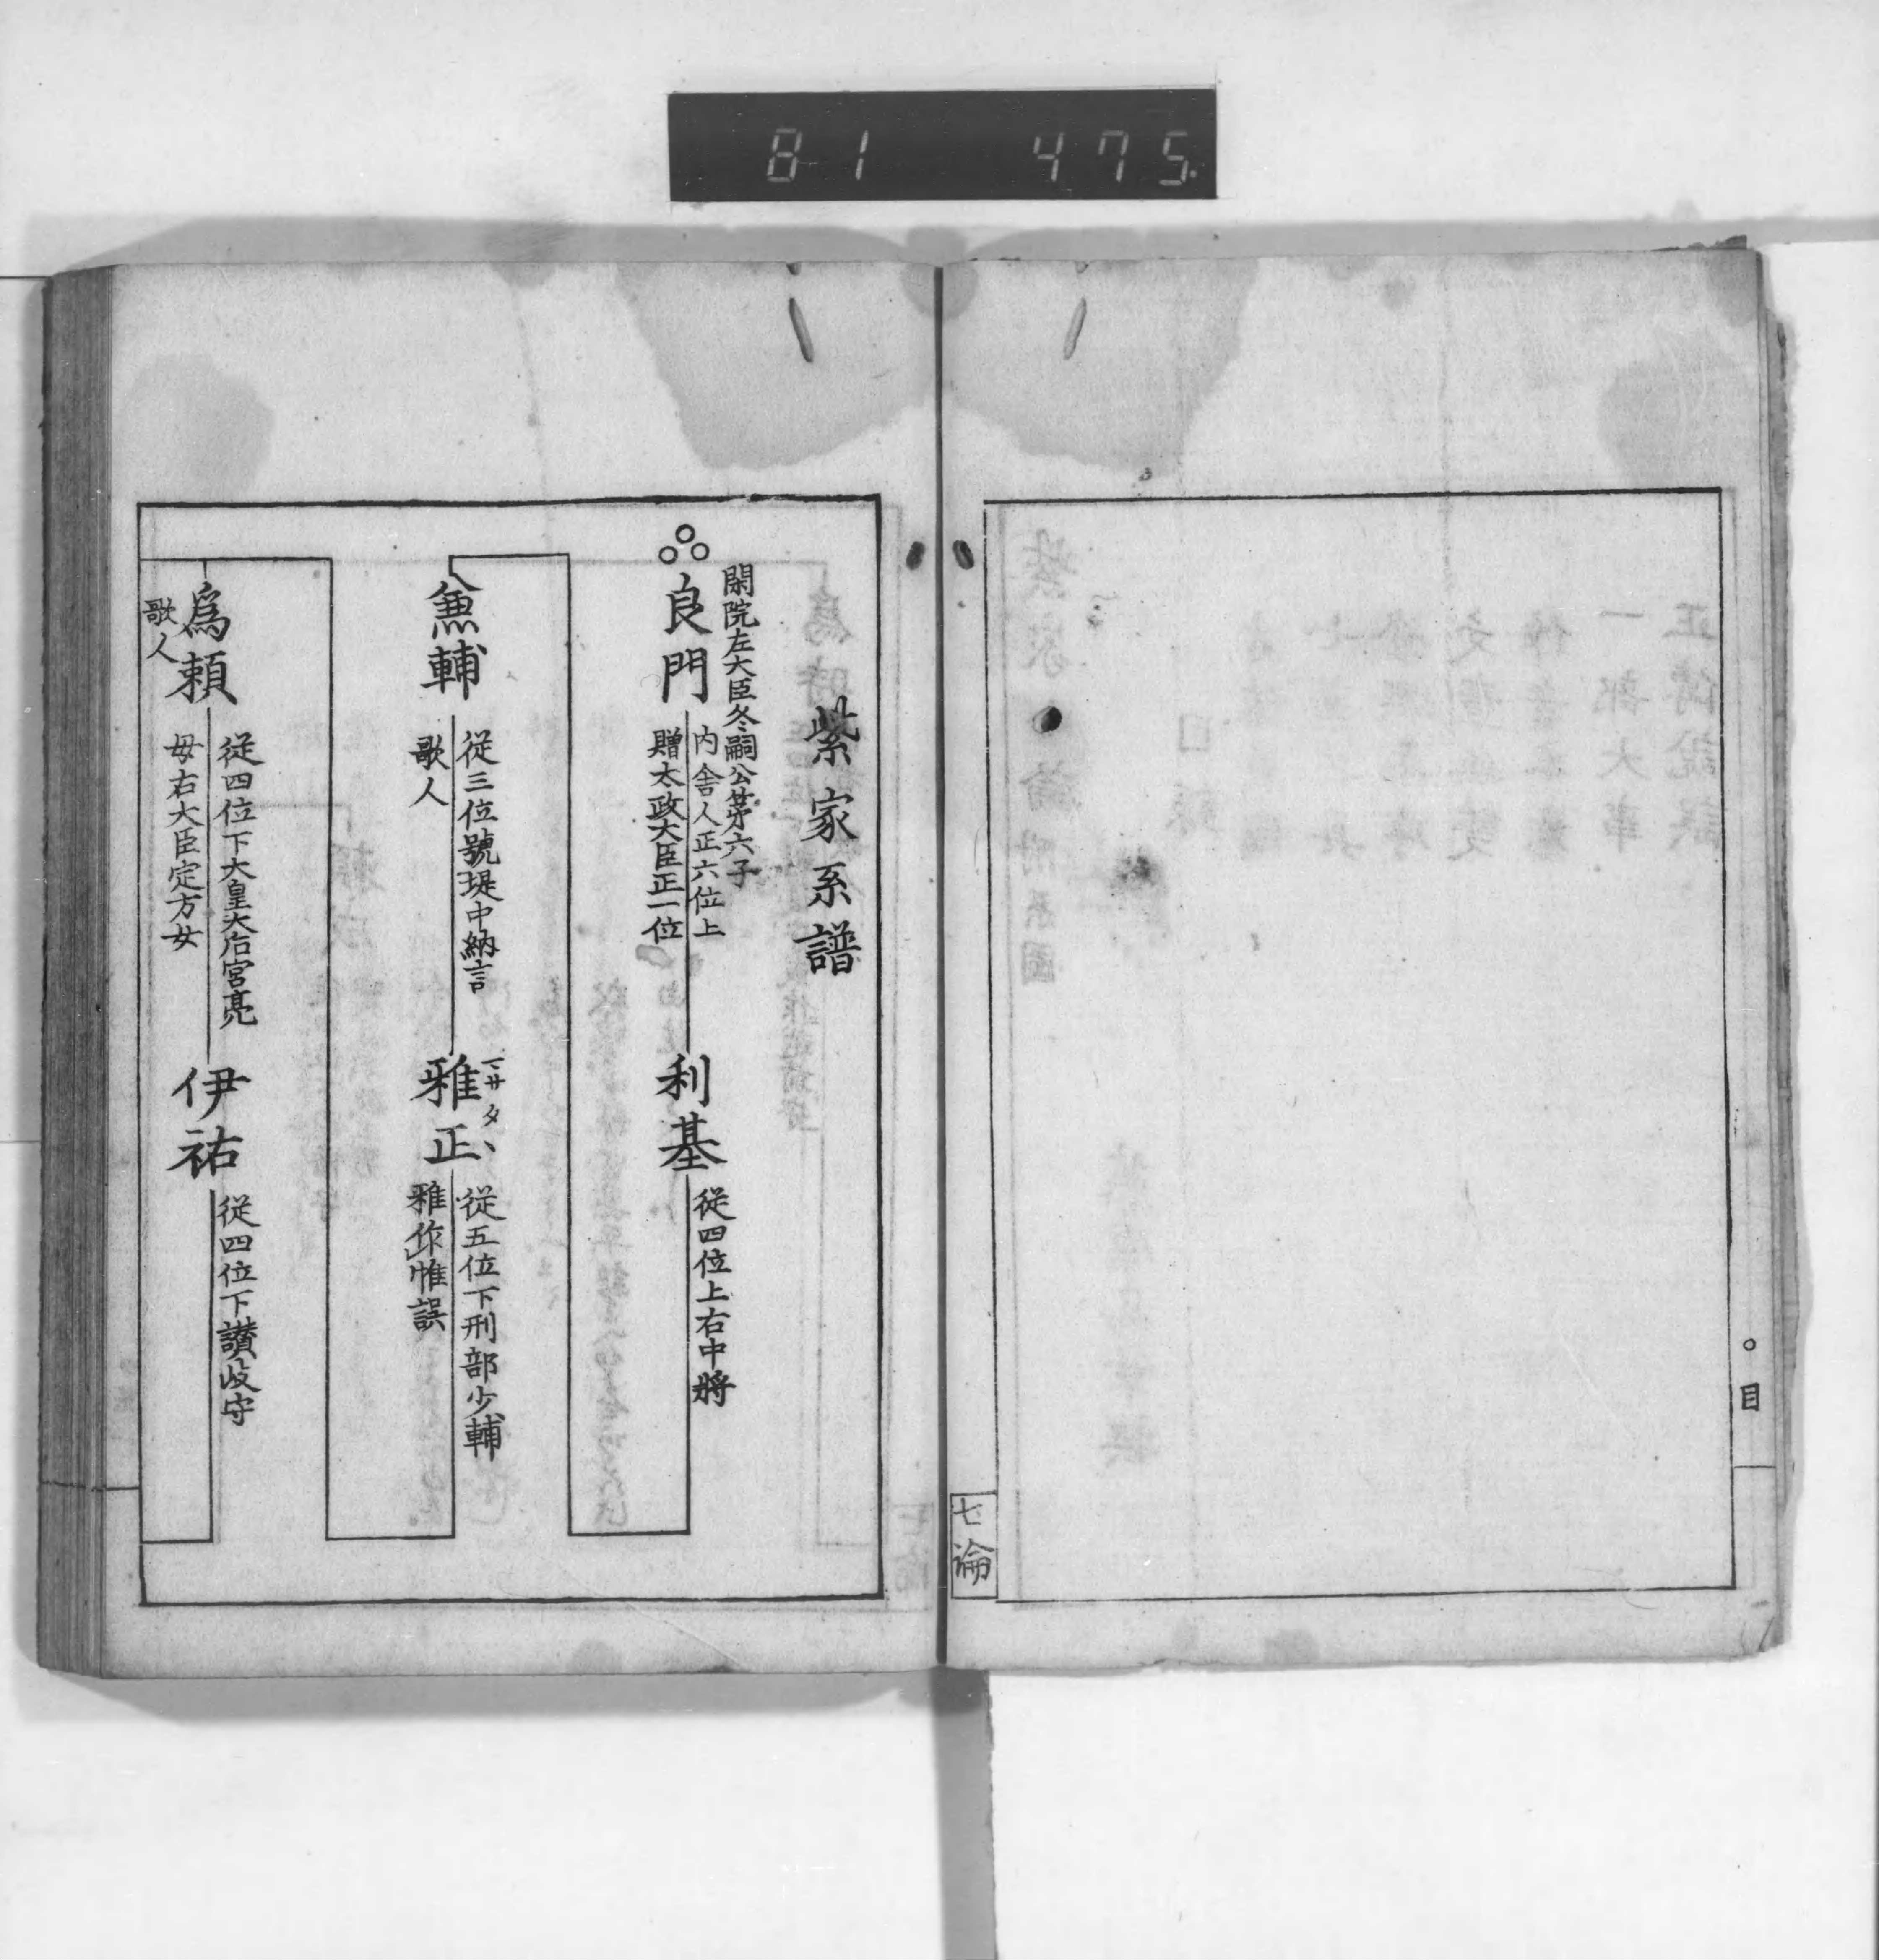 81 475
目
七論
紫家系譜
閑院左大臣冬嗣公苐六子
良門
内舎人正六位上
贈太政大臣正一位
利基
從四位上右中將
兼輔
從三位號堤中納言
歌人
雅正
マサタヽ
從五位下刑部少輔
雅作惟誤
爲頼
歌人
從四位下大皇大后宮亮
母右大臣定方女
伊祐
從四位下讃岐守